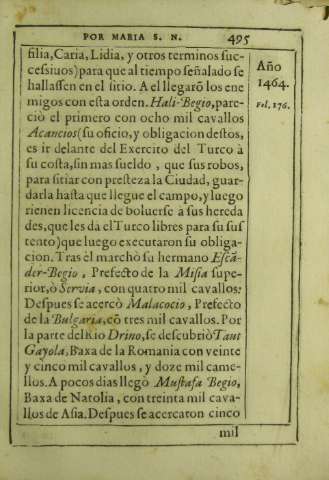 POR MARIA S. N. 495
silia, Caria, Lidia, y otros terminos suc-
cessiuos) para que al tiempo señalado se
hallassen en el sitio. A el llegarõ los ene
migos con esta orden. Hali-Begio, pare-
ciò el primero con ocho mil cavallos
Acancios (su oficio, y obligacion destos,
es ir delante del Exercito del Turco à
su costa, sin mas sueldo, que sus robos,
para sitiar con presteza la Ciudad, guar-
darla hasta que llegue el campo, y luego
tienen licencia de boluerse à sus hereda
des, que les dà el Turco libres para su sus
tento) que luego executaron su obliga-
cion. Tras èl marchò su hermano Escã
der-Begio, Prefecto de la Misia supe-
rior, ò Servia, con quatro mil cavallos:
Despues se acercò Malacocio, Prefecto
de la Bulgaria, cõ tres mil cavallos. Por
la parte del Rio Drino, se descubriò Taut
Gayola, Baxa de la Romania con veinte
y cinco mil cavallos, y doze mil came-
llos. A pocos dias llegò Mustafa Begio,
Baxa de Natolia, con treinta mil cava-
llos de Asia. Despues se acercaron cinco
mil
Año
1464.
Fol. 176.